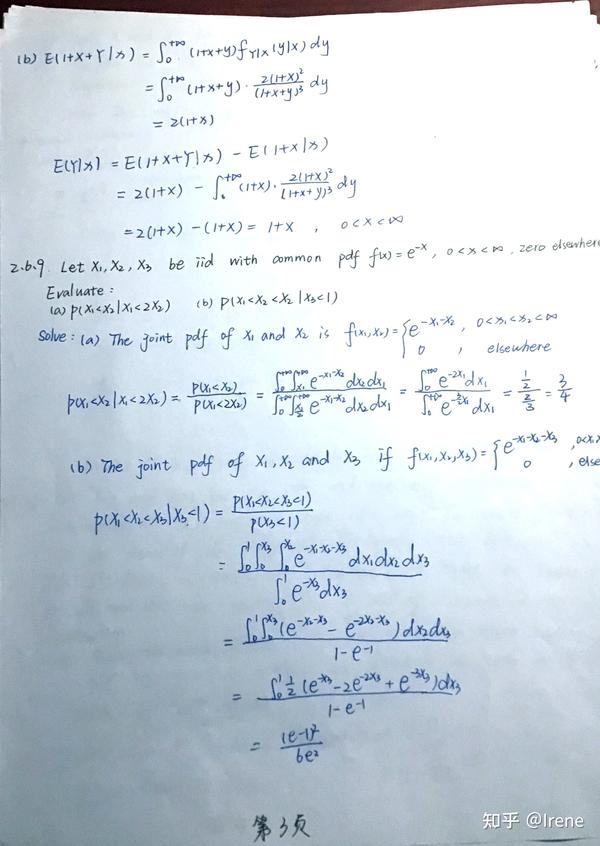 (b) E(1+X+Y|x) = ∫₀^{+∞} (1+x+y) f_{Y|X}(y|x) dy
= ∫₀^{+∞} (1+x+y) · \frac{2(1+x)²}{(1+x+y)³} dy
= 2(1+x)
E(Y|x) = E(1+X+Y|x) - E(1+X|x)
= 2(1+x) - ∫₀^{+∞} (1+x) · \frac{2(1+x)²}{(1+x+y)³} dy
= 2(1+x) - (1+x) = 1+x , 0<x<∞
2.6.9. Let X₁, X₂, X₃ be iid with common pdf f(x) = e^{-x}, 0<x<∞, zero elsewhere
Evaluate:
(a) P(X₁<X₂|X₁<2X₂) (b) P(X₁<X₂<X₂|X₃<1)
Solve: (a) The joint pdf of X₁ and X₂ is f(x₁,x₂) = { e^{-x₁-x₂} , 0<x₁<x₂<∞
0 , elsewhere
P(X₁<X₂|X₁<2X₂) = \frac{P(X₁<X₂)}{P(X₁<2X₂)} = \frac{∫₀^{+∞}∫_{x₁}^{+∞} e^{-x₁-x₂} dx₂dx₁}{∫₀^{+∞}∫_{\frac{x₁}{2}}^{+∞} e^{-x₁-x₂} dx₂dx₁} = \frac{∫₀^{+∞} e^{-2x₁} dx₁}{∫₀^{+∞} e^{-\frac{3}{2}x₁} dx₁} = \frac{\frac{1}{2}}{\frac{2}{3}} = \frac{3}{4}
(b) The joint pdf of X₁, X₂ and X₃ if f(x₁,x₂,x₃) = { e^{-x₁-x₂-x₃} , 0<x₁
0 , else
P(X₁<X₂<X₃|X₃<1) = \frac{P(X₁<X₂<X₃<1)}{P(X₃<1)}
= \frac{∫₀^1∫₀^{x₃}∫₀^{x₂} e^{-x₁-x₂-x₃} dx₁dx₂dx₃}{∫₀^1 e^{-x₃} dx₃}
= \frac{∫₀^1∫₀^{x₃} (e^{-x₂-x₃} - e^{-2x₂-x₃}) dx₂dx₃}{1-e^{-1}}
= \frac{∫₀^1 \frac{1}{2} (e^{-x₃} - 2e^{-2x₃} + e^{-3x₃}) dx₃}{1-e^{-1}}
= \frac{(e-1)²}{6e²}
第3页
知乎 @Irene